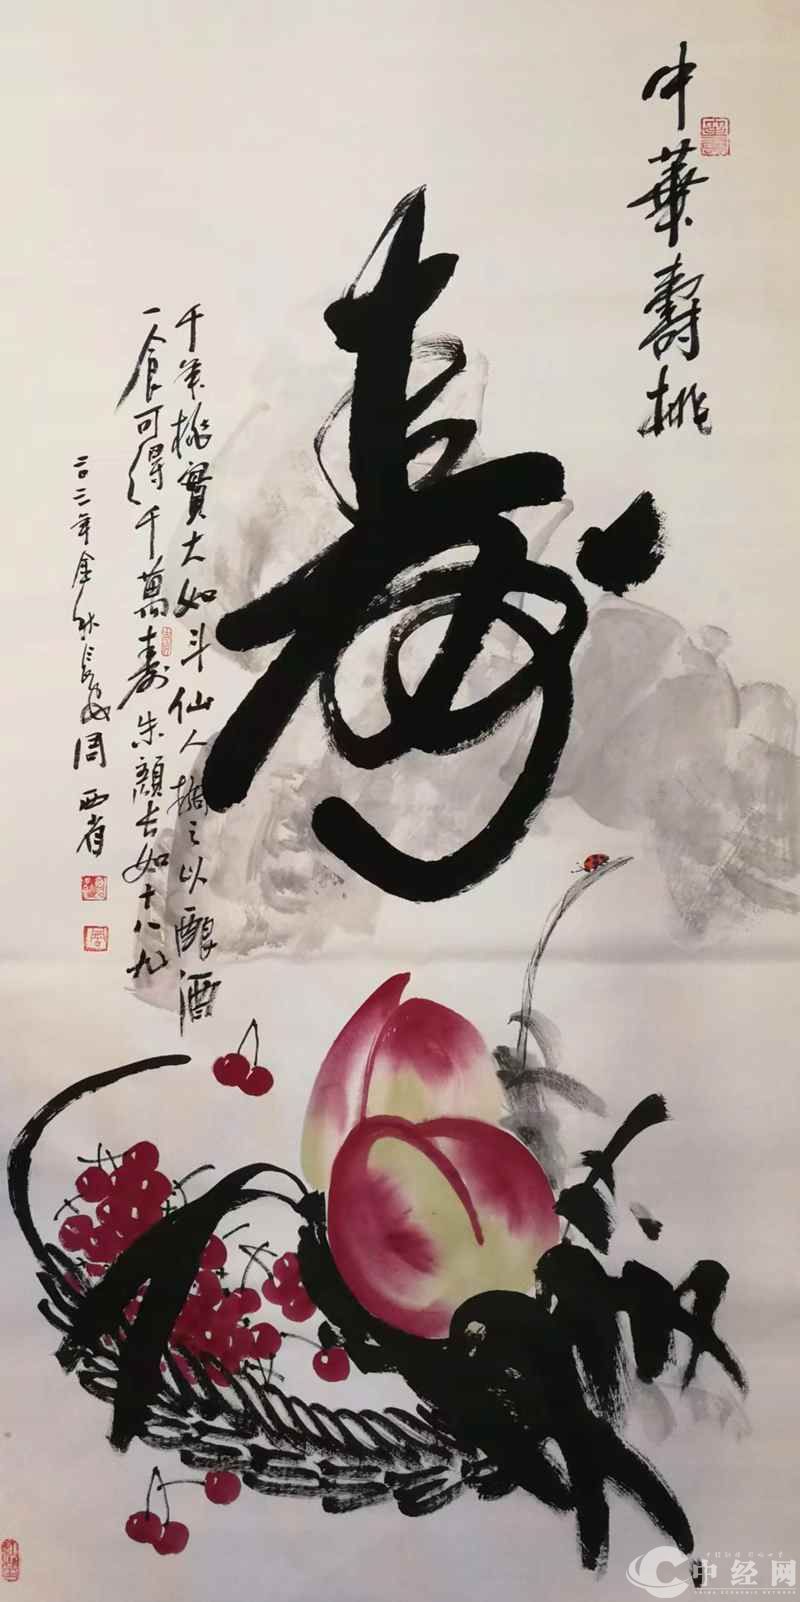 中華壽桃
寿
千年桃實大如斗仙人摘之以釀酒
一食可得千萬寿朱顏长如十八九
二〇二二年金秋長安周西省
中经网
CHINA ECONOMIC NETWORK